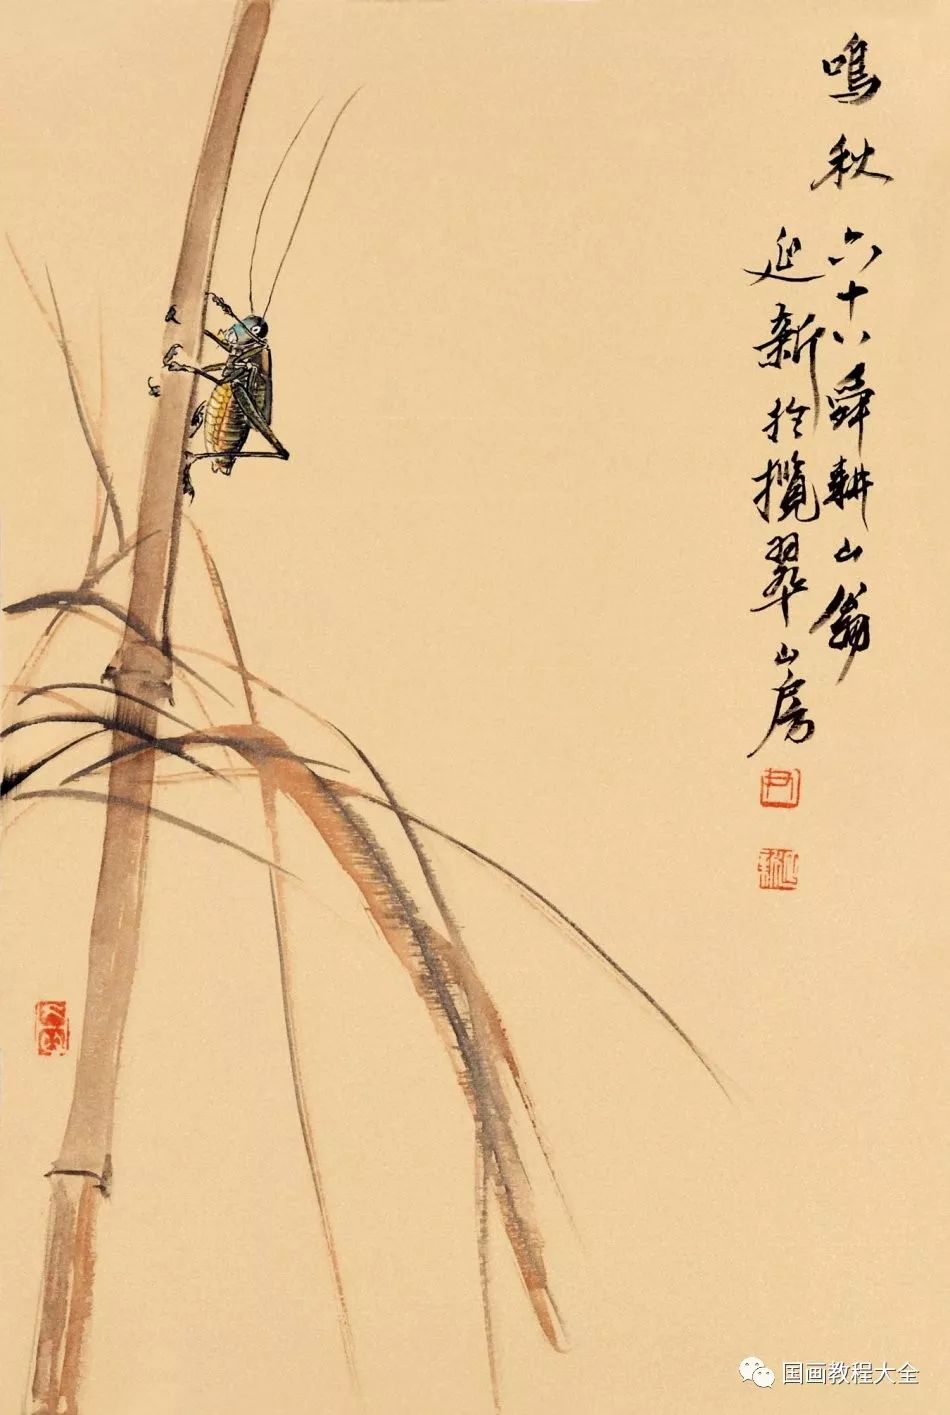 鳴秋
六十八舜耕山翁
延新於攬翠山房
国画教程大全